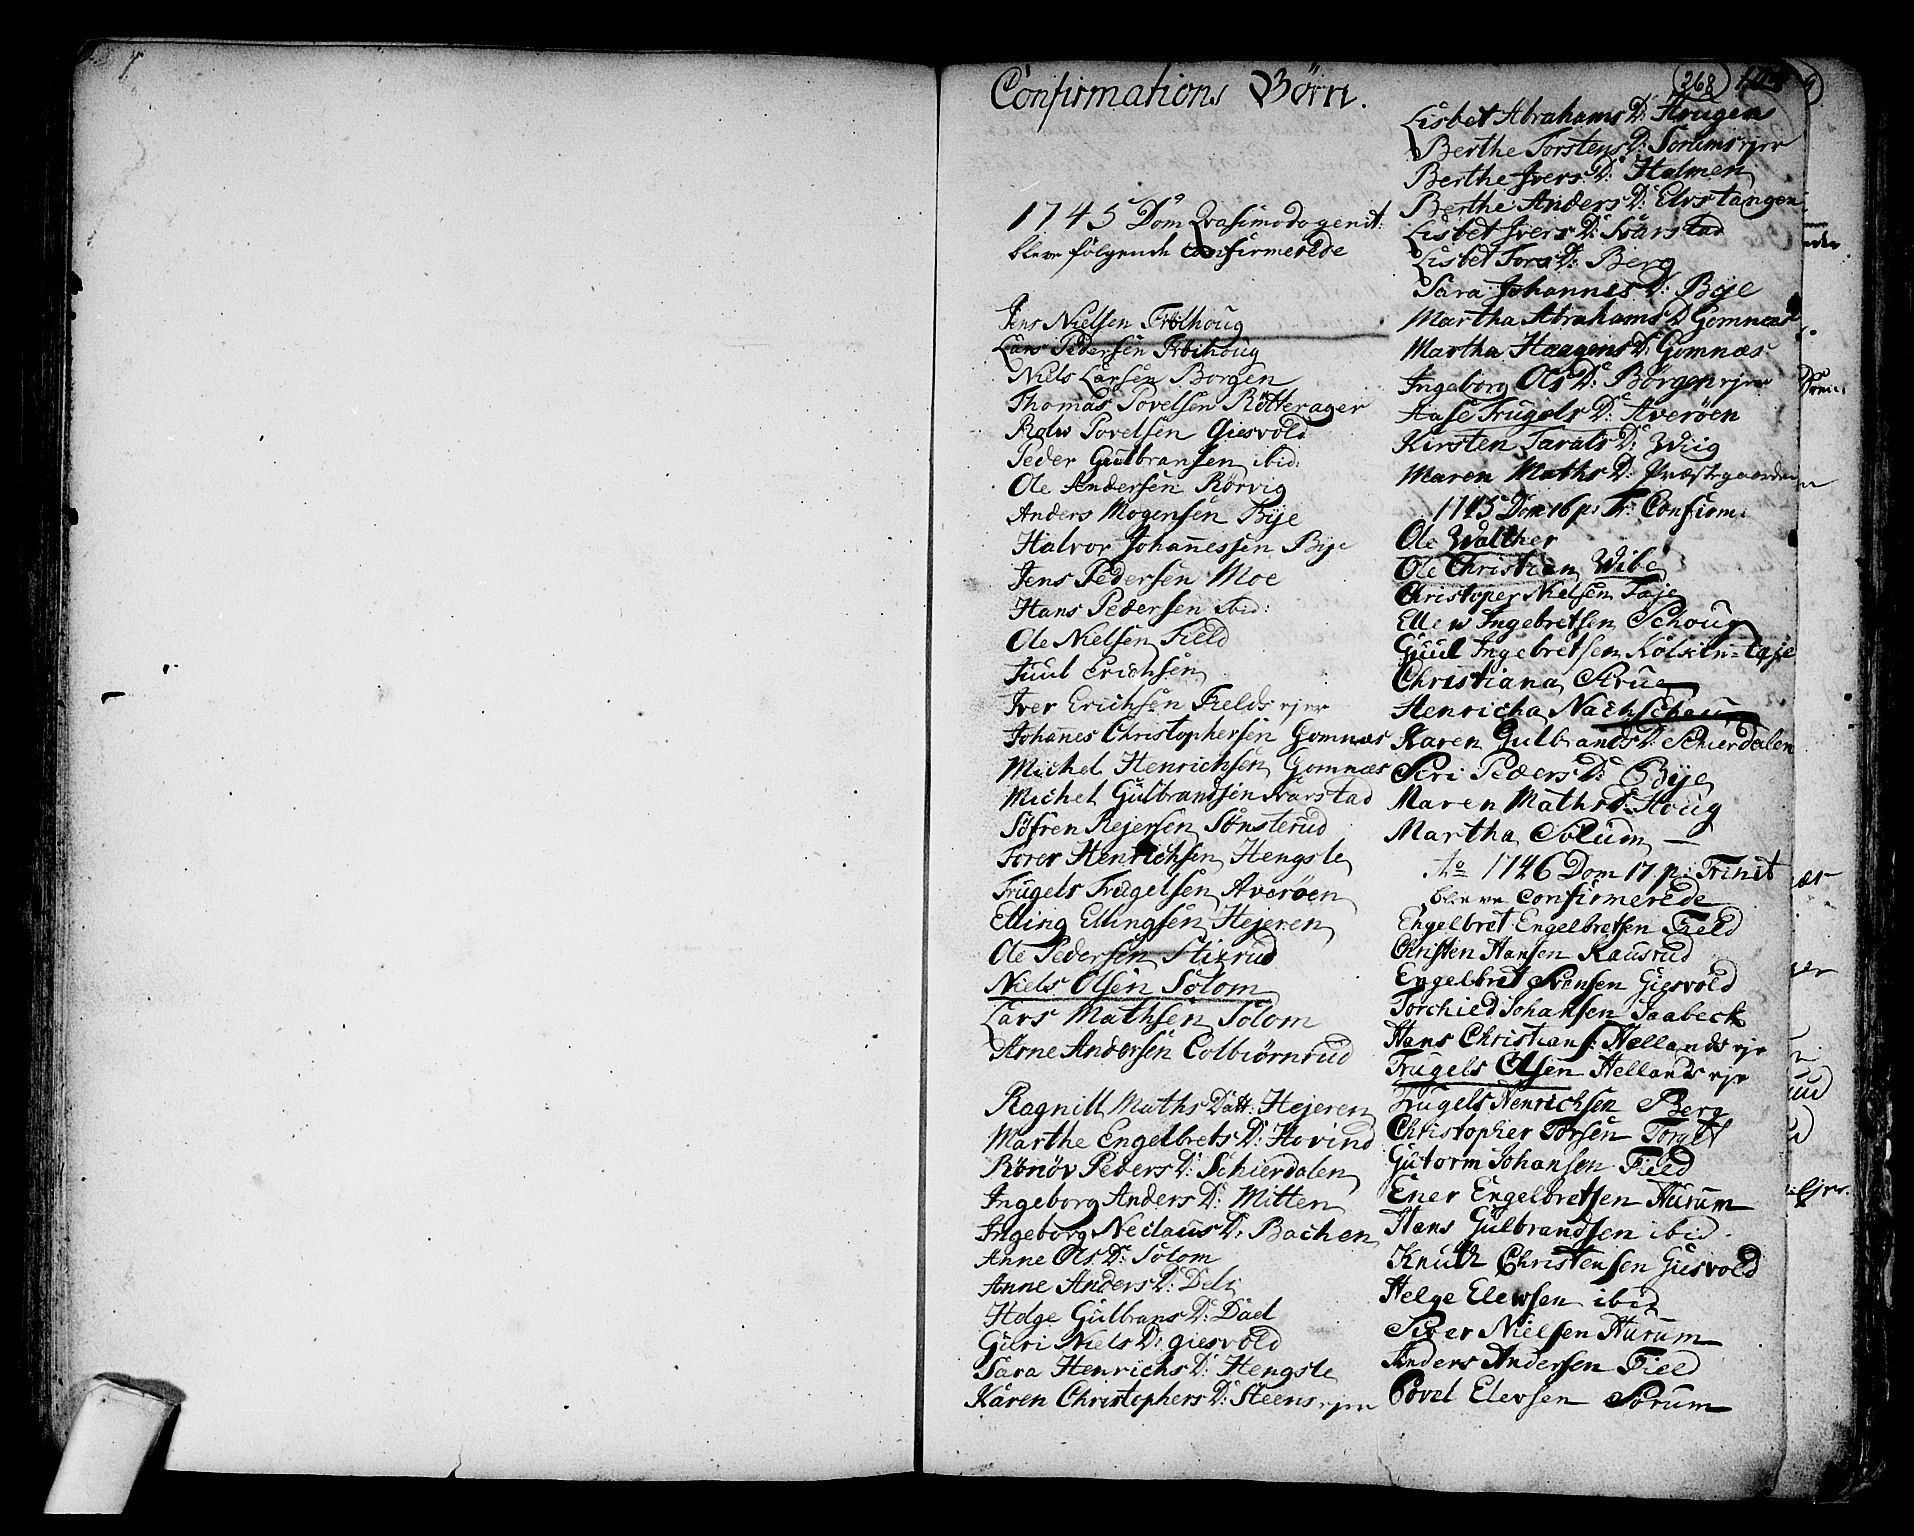 Confirmations Børn.
268
1745 Dom Qvasimodogenit:
bleve følgende confirmerede
Jens Nielsen Frøihoug
Lars Pedersen Frøihoug
Niels Larsen Borgen
Thomas Povelsen Røtterager
Rolv Povelsen Giesvold
Peder Gulbransen ibid:
Ole Andersen Rørvig
Anders Mogensen Bye
Halvor Johannessen Bye
Jens Pedersen Moe
Hans Pedersen ibid:
Ole Nielsen Field
Juul Erichsen
Iver Erichsen Fields ejer
Johannes Christophersen Gomnæs
Michel Henrichsen Gomnæs
Michel Gulbrandsen Svarstad
Søfren Rejersen Sønsterud
Torer Henrichsen Hengsle
Trugels Trugelsen Averøen
Elling Ellingsen Hejeren
Ole Pedersen Stixrud
Niels Olsen Solom
Lars Mathsen Solom
Arne Andersen Colbiørnrud
Ragnill Maths Datt: Hejeren
Marthe Engelbrets D: Hovind
Rønøv Peders D: Schierdalen
Ingeborg Anders D: Mitten
Ingeborg Neclaus D: Bachen
Anne Ols D: Solom
Anne Anders D: Deli
Helge Gulbrans D: Dael
Guri Niels D: Giesvold
Sara Henrichs D: Hengsle
Karen Christophers D: Steens ejer
Lisbet Abrahams D: Hougen
Berthe Torstens D: Sorums ejer
Berthe Ivers D: Halmen
Berthe Anders D: Elvstangen
Lisbet Ivers D: Svarstad
Lisbet Tors D: Berg
Sara Johannes D: Bye
Martha Abrahams D Gomnæs
Martha Haagens D: Gomnæs
Ingeborg Ols D: Borgen ejer
Aase Trugels D: Averøen
Kirsten Tarals D: Wiig
Maren Maths D: Præstegaarden
1745 Dom 16 p: Tr: Confirm:
Ole Walther
Ole Christian Wibe
Christoper Nielsen Faje
Ellen Ingebretsen Schoug
Guul Ingebretsen Kølsin-Faje
Christiana Strug
Henricha Nachschoug
Karen Gulbrands D: Schierdalen
Siri Peders D: Bye
Maren Maths D: Houg
Martha Solum
Ao 1746 Dom 17 p: Trinit
bleve confirmerede
Engelbret Engelbretsen Field
Christen Hansen Rausrud
Engelbret Svensen Giesvold
Torchied Johansen Saabeck
Hans Christians: Hællands eje
Trugels Olsen Hellands eje
Trugels Henrichsen Berg
Christopher Torsen Torget
Gutorm Johansen Field
Ener Engelbretsen Hurum
Hans Gulbrandsen ibid.
Knuth Christensen Giesvold
Helge Elevsen ibid
Siver Nielsen Hurum
Anders Andersen Field
Povel Elevsen Sorum